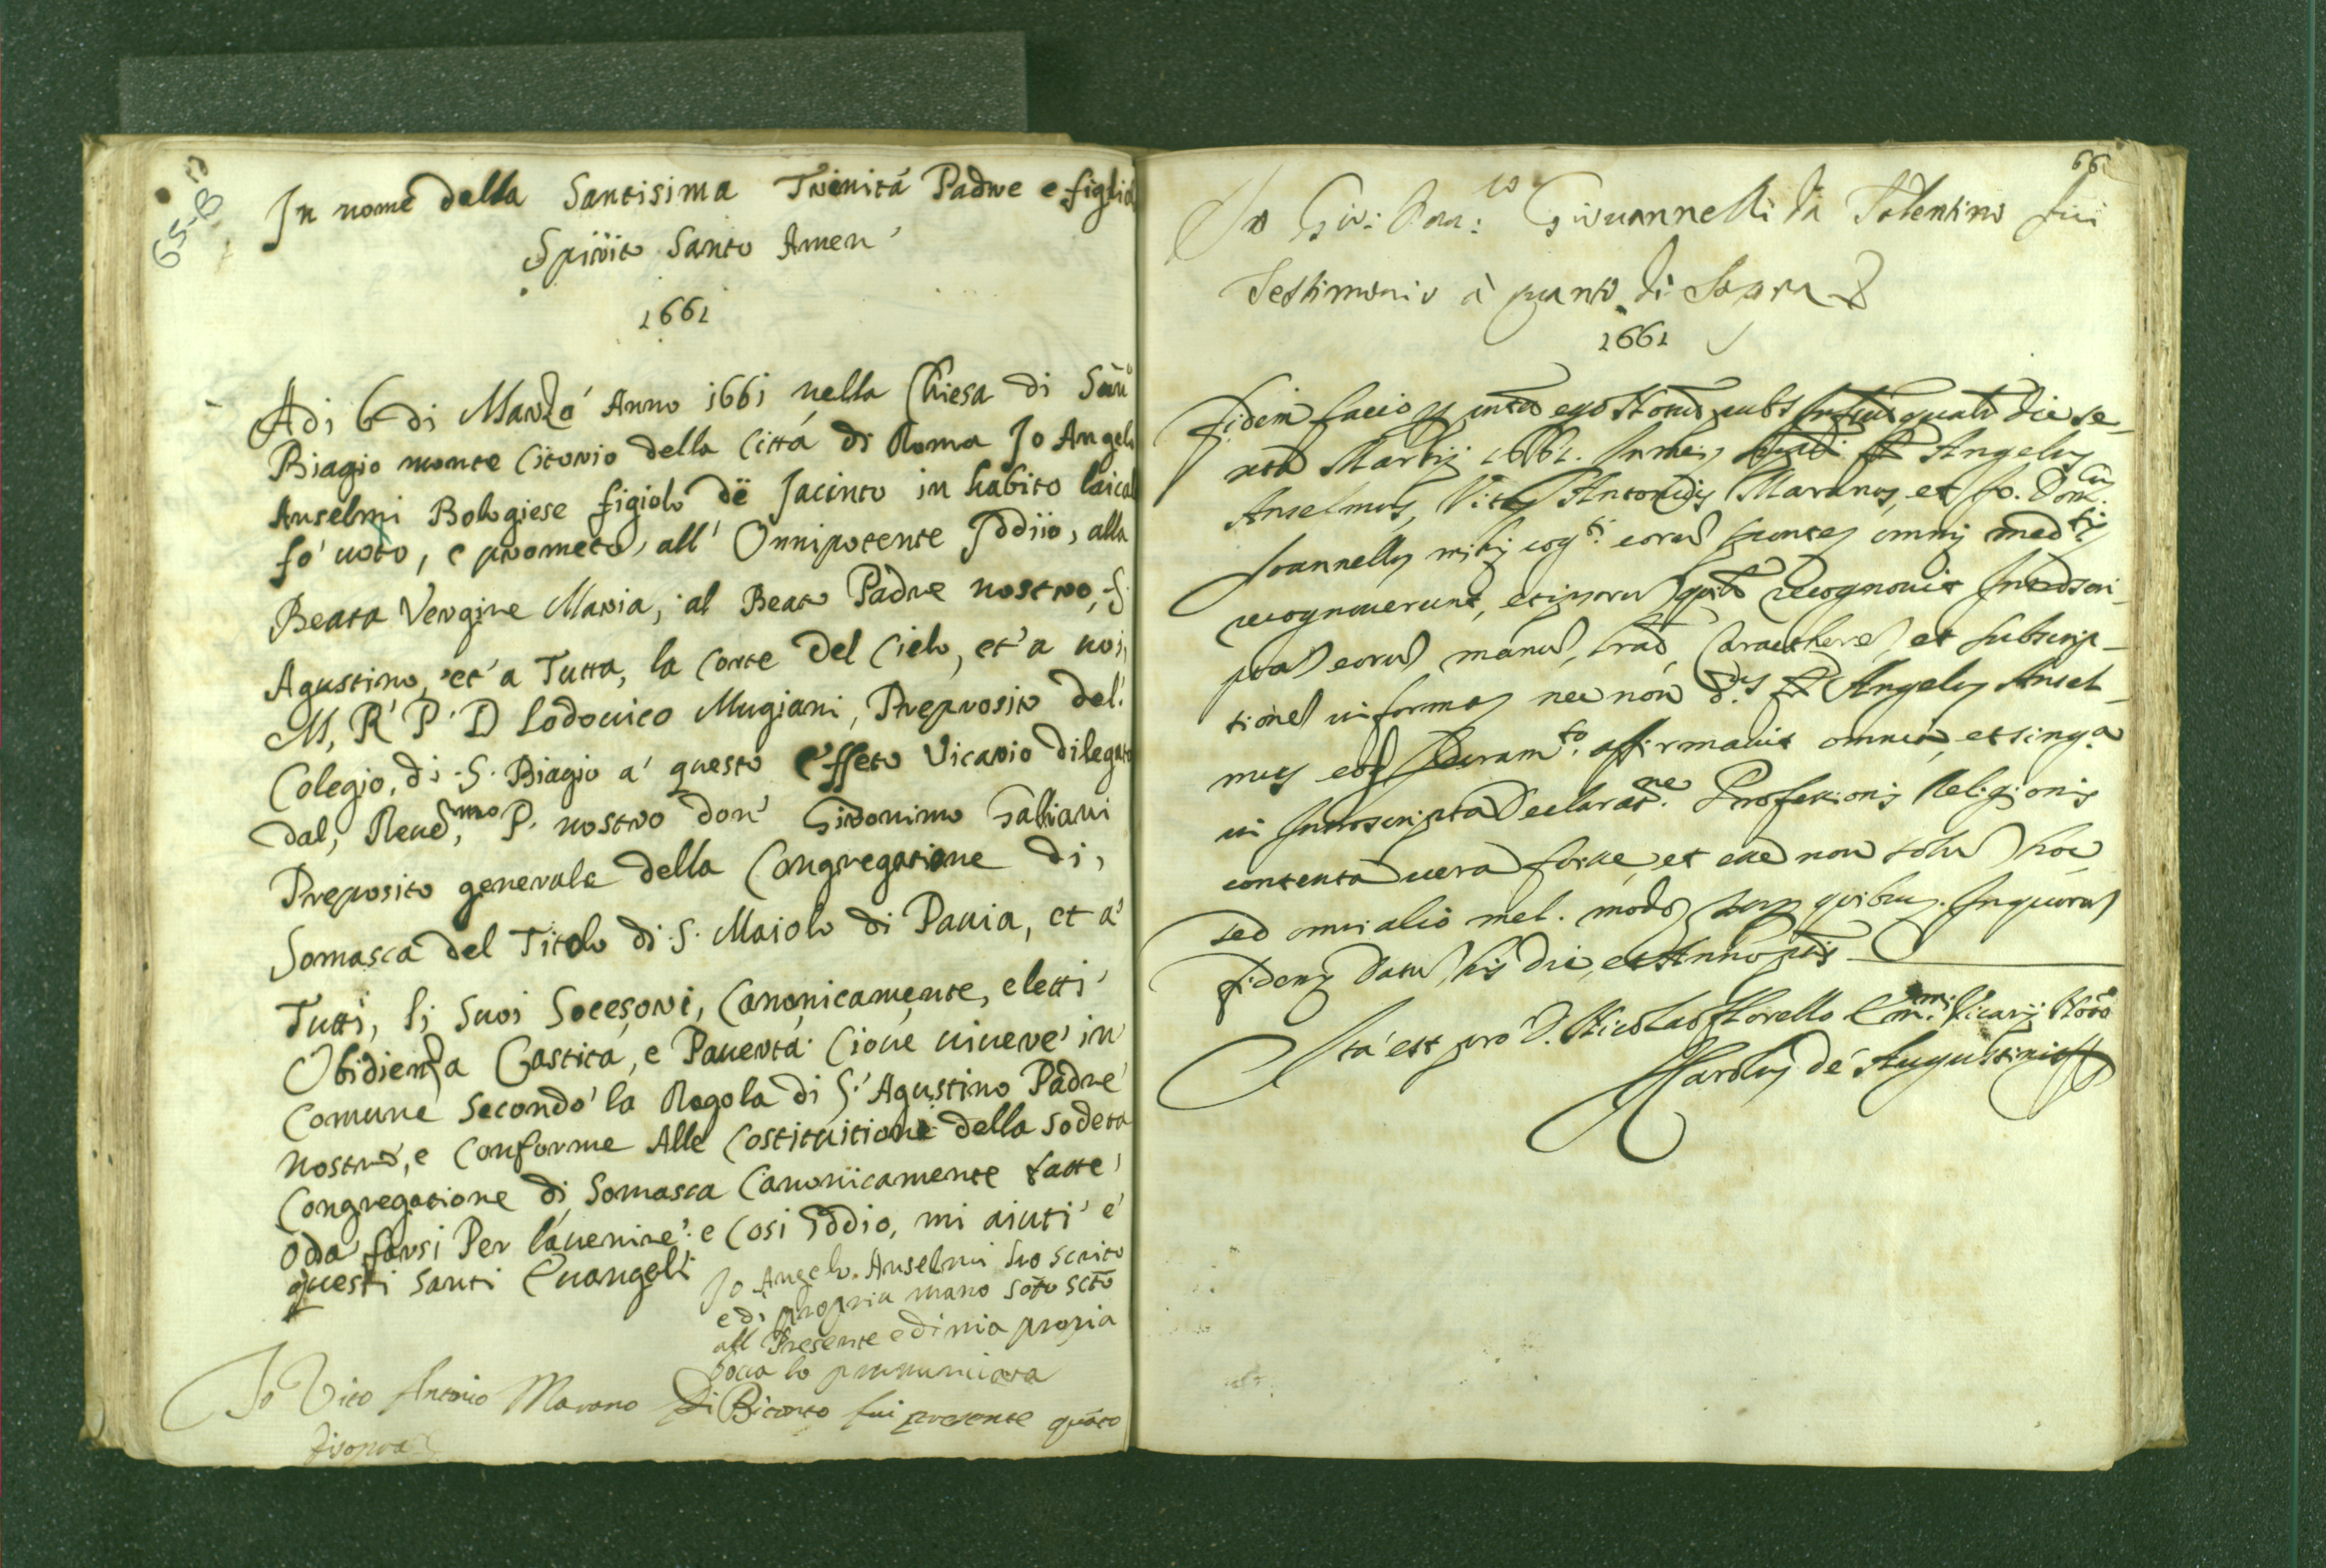 65-B
In nome della Santisima Trinitá Padre e figlio
Spirito Santo Amen
1661
Adi 6 di Marzo Anno 1661 nella Chiesa di San
Biagio monte Citorio della Cittá di Roma Io Angelo
Anselmi Bologiese figiolo de Jacinto in habito laical
fo' uoto, e prometo, all' Onnipotente Iddiio, alla
Beata Vergine Maria, al Beato Padre nostro, S.
Agustino, et' a Tutta, la Corte Del Cielo, et' a noi,
M, R' P. D Lodouico Mugiani, Preposito del.
Colegio, di .S. Biagio a' questo effeto Vicario dilegato
dal, Reued,mo P. nostro don' Gironimo Galliani
Preposito generale della Congregatione di,
Somasca del Titolo di .S. Maiolo di Pauia, et a'
Tutti, li Suoi Socesori, Canonicamente, eletti'
Obidienza Castita, e Pauertá. Cioue uiuere' in
Comune Secondo' la Regola di S.' Agustino Padre
Nostro, e Conforme Alle Costituitione della Sodeta
Congregatione di Somasca Canonicamente fatte,
O da farsi Per lauenire': e Cosi Iddio, mi aiuti' e'
questi Santi Euangeli
Io Angelo. Anselmi ho scrito
e di propria mano soto scto
all Presente e di mia propia
boca lo pronunciata
Io Vito Antonio Marano Di Bitonto fui presente quāto
disopra
66
Io Gio: Dom:co Giouannelli da Tolentino fui
Testimonio à quanto di Sopra
1661
fidem facio ego die se-
xta Martij 1661. Angelus
Anselmus, Vitus Antonius Maranus, et Jo. Dom.cus
Joannellus mihi cog.ti sponte omni med.ti
recognouerunt, recognouit
manus, et subscrip-
tiones in forma nec non d.s Angelus Ansel-
mus Juram.to affirmauit omnia, et sing.a
in Declarat.ne Professionis Religionis
contenta uera fuisse, et esse non solum hoc
sed omni alio mel. modo quibus. In quorum
fidem Datum his die, et Anno
Ita est pro D. Nicolao Florello Em.mi Vicarij Noto
Carolus de Augustinis